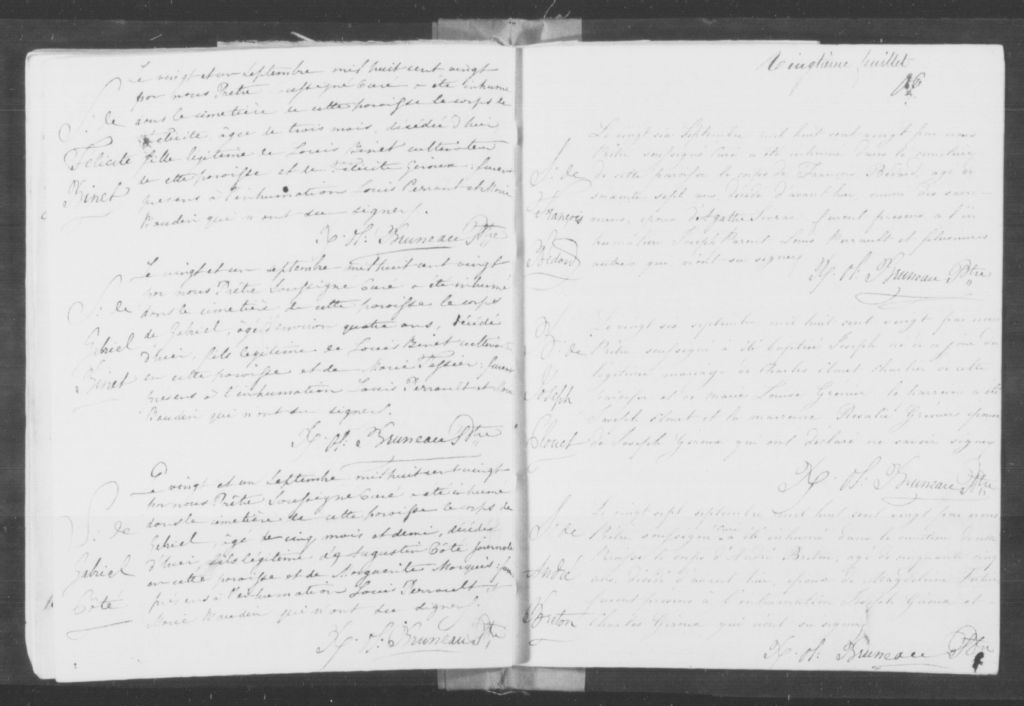 Le vingt et un Septembre mil huit cent vingt
par nous Prêtre soussigné Curé a été inhumé
dans le cimetière de cette paroisse le corps de
Felicité, âgée de trois mois, décédée d'hier
fille legitime de Louis Binet cultivateur
de cette paroisse et de Felicité Giroux: furent
présens à l'inhumation Louis Perrault et Marie
Baudin qui n'ont su signer.
S: de
Felicité
Binet
X. Of. Bruneau Ptre
Le vingt et un septembre mil huit cent vingt
par nous Prêtre soussigné Curé a été inhumé
dans le cimetière de cette paroisse le corps
de Gabriel, âgé d'environ quatre ans, décédé
d'hier, fils legitime de Louis Binet cultivateur
en cette paroisse et de Marie Tessier: furent
présens à l'inhumation Louis Perrault et
Baudin qui n'ont su signer.
S: de
Gabriel
Binet
X. Of. Bruneau Ptre
Le vingt et un Septembre mil huit cent vingt
par nous Prêtre Soussigné Curé a été inhumé
dans le cimetière de cette paroisse le corps de
Gabriel, âgé de cinq mois et demi, décédé
d'hier, fils légitime d'Augustin Côté journalier
en cette paroisse et de Marguerite Marquis:
présens à l'inhumation Louis Perrault et
Marie Baudin qui n'ont su signer.
S: de
Gabriel
Côté
X. Of. Bruneau Ptre
Vingtième feuillet
Le vingt six Septembre mil huit cent vingt par nous
Prêtre soussigné Curé a été inhumé dans le cimetière
de cette paroisse le corps de François Bédard, agé de
soixante sept ans, décédé d'avant hier, muni des
époux d'Agathe furent présens à l'in
humation Joseph Louis Perrault et plusieurs
autres qui n'ont su signer
S: de
François
Bédard
X. Of. Bruneau Ptre
Le vingt six septembre mil huit cent vingt par
Prêtre soussigné a été baptisé Joseph né ce jour du
légitime mariage de Charles Clouet de cette
paroisse et de Marie Louise Grenier le parrain a été
Clouet et la marraine Rosalie Grenier épouse
de Joseph Giroux qui ont déclaré ne savoir signer
B: de
Joseph
Clouet
X. Of. Bruneau Ptre
Le vingt sept septembre mil huit cent vingt par nous
Prêtre soussigné Curé a été inhumé dans le cimetière de cette
paroisse le corps d'André Breton, agé de
ans, décédé d'avant hier, époux de Magdeleine
furent présens à l'inhumation Joseph Giroux et
Charles Giroux qui n'ont su signer
S: de
André
Breton
X. Of. Bruneau Ptre